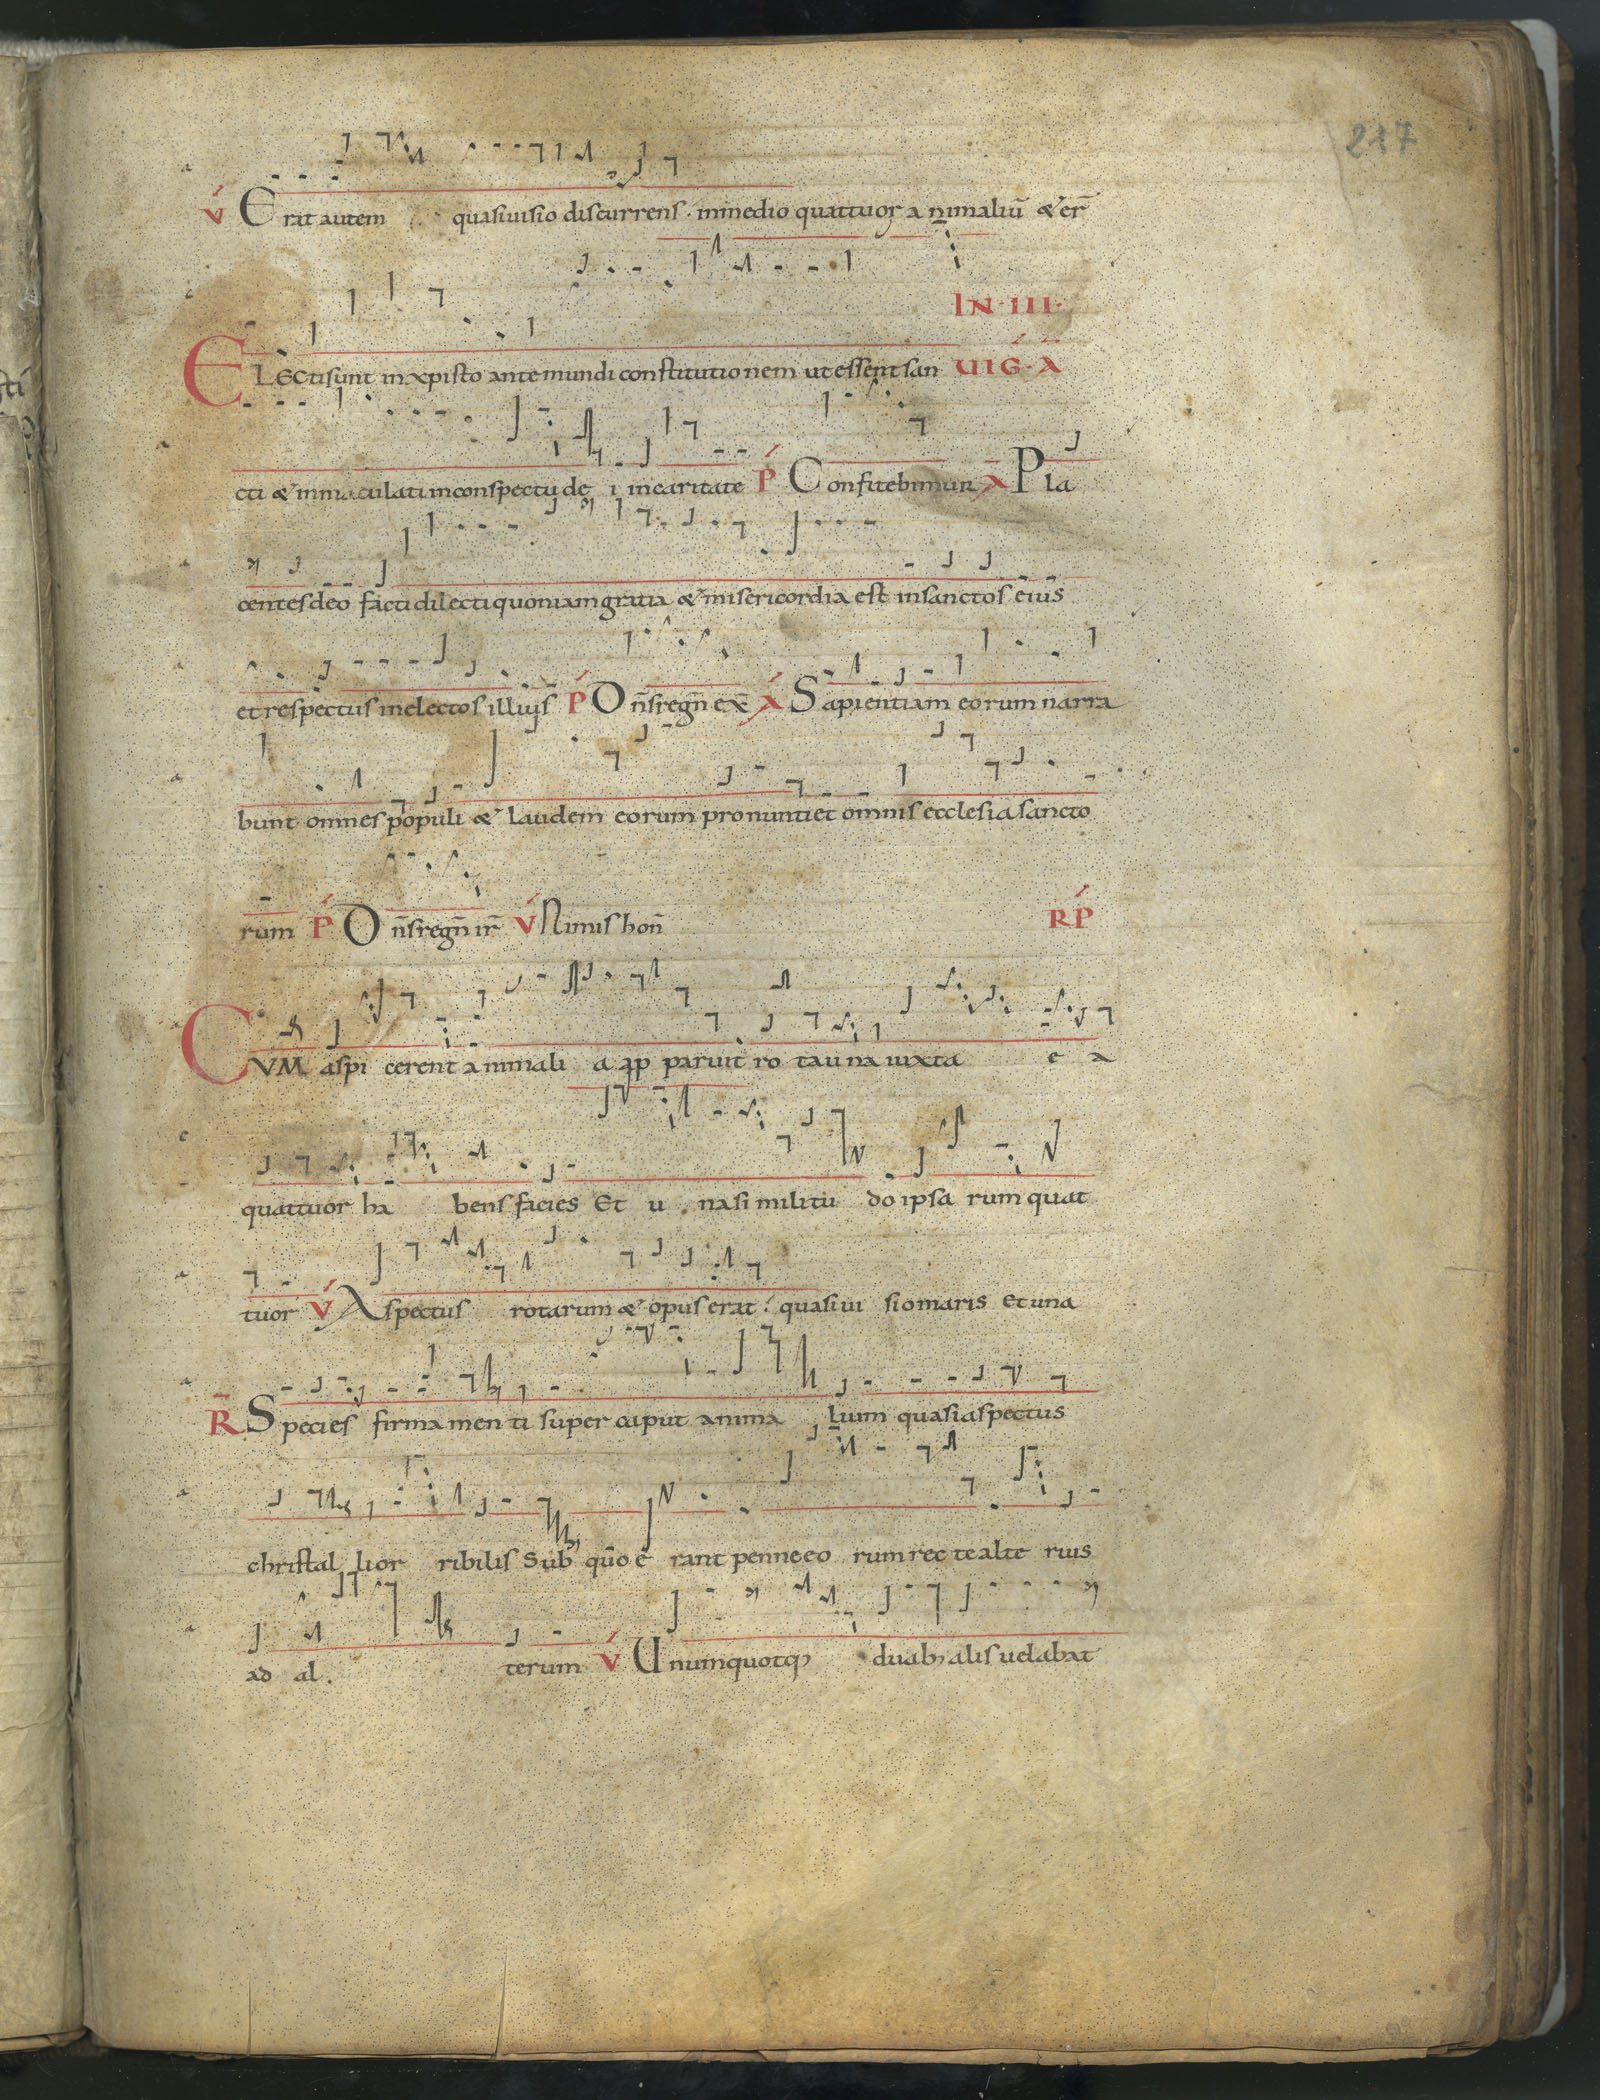 217
V́ Erat autem quasi uisio discurrens . inmedio quattuor animaliū & er̄
IN · III ·
Electi sunt in xpisto ante mundi constitutionem ut essent san UIG̓ · Ā
cti & inmaculati in conspectu dei in caritate P̓ Confitebimur Ā Pla
centes deo facti dilecti quoniam gratia & misericordia est in sanctos eius
et respectus in electos illius P̓ Dn̄s regn̄ ex̄ Á Sapientiam eorum narra
bunt omnes populi & laudem eorum pronuntiet omnis ecclesia sancto
rum P̓ Dn̄s regn̄ ir̄ V́ Nimis hon̄ RP̓
CVM aspicerent animalia apparuit rota una iuxta ea
quattuor habens facies Et una similitudo ipsarum quat
tuor V́ Aspectus rotarum & opus erat . quasi uisio maris Et una
R̄ Species firmamenti super caput animalium quasi aspectus
christalli orribilis Sub quo erant penne eorum recte alterius
ad al . terum V́ Unumquotq; duab; alis uelabat